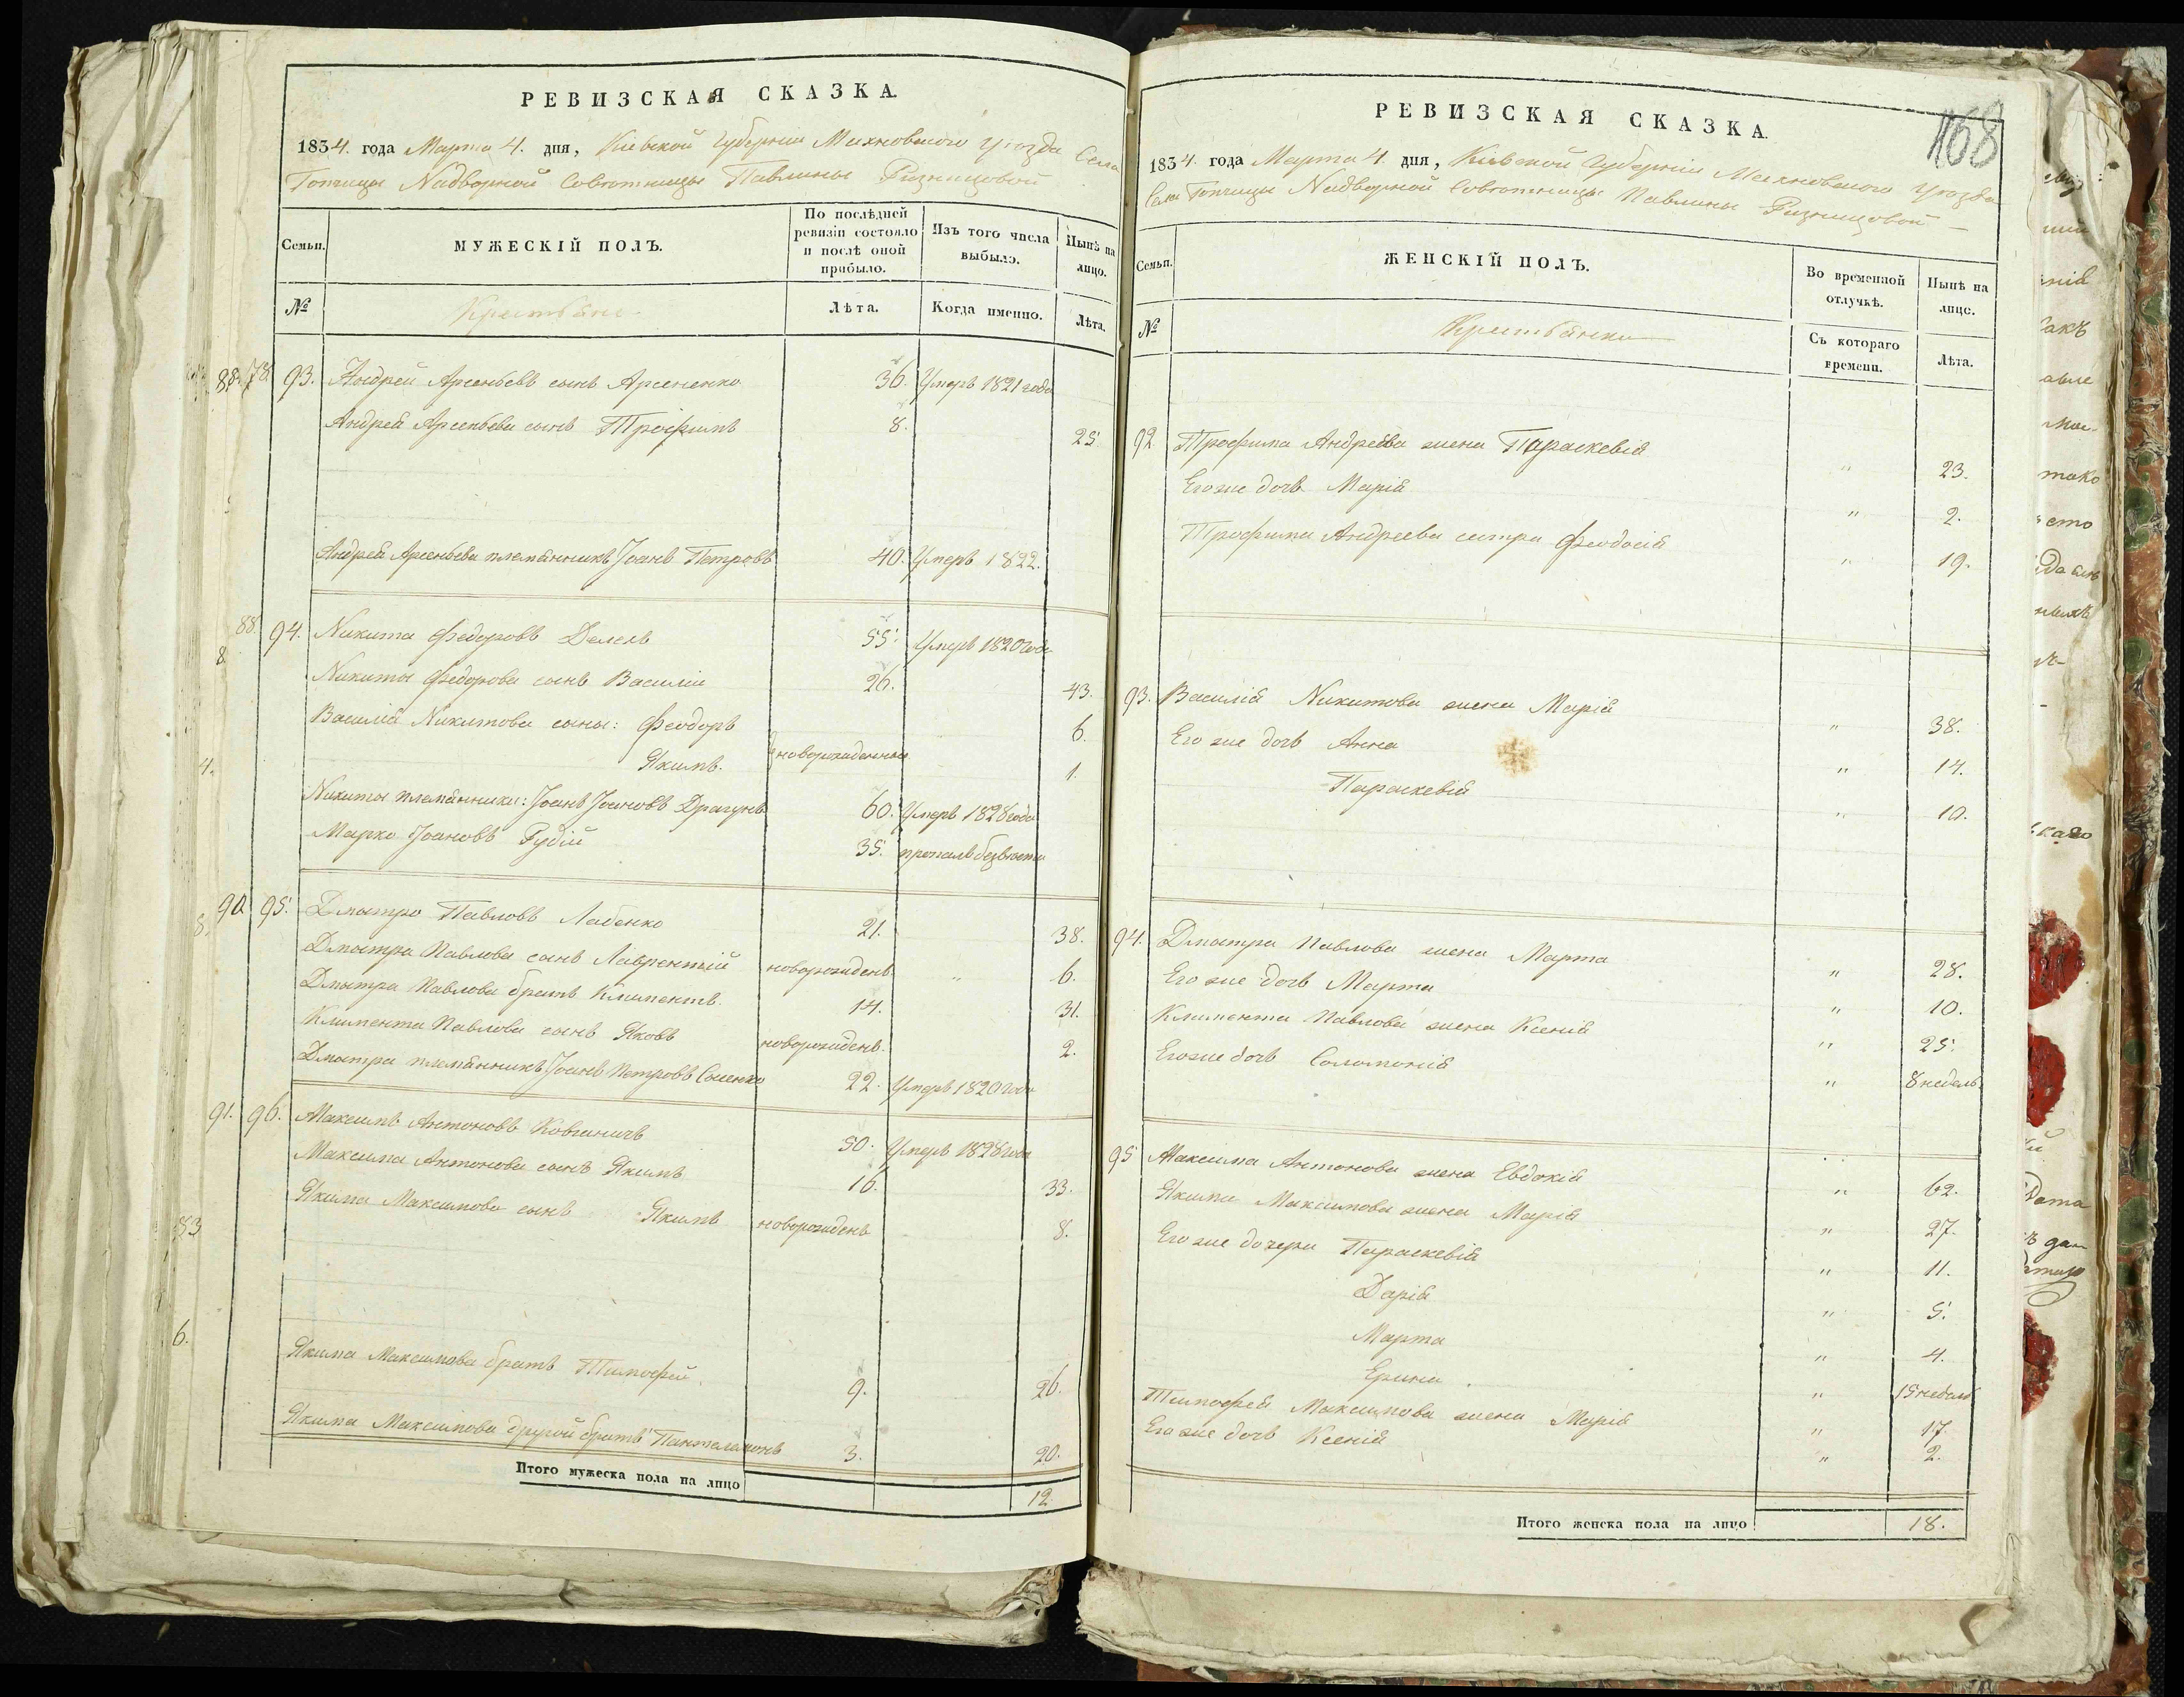 РЕВИЗСКАЯ СКАЗКА.
1834. года Марта 4. дня, Кіевской Губерніи Махновскаго уѣзда Села
Топчицы Надворной Совѣтницы Павлины Ризницовой
Семьи.
МУЖЕСКІЙ ПОЛЪ.
По послѣдней ревизіи состояло и послѣ оной прибыло.
Изъ того числа выбыло.
Нынѣ на лицо.
№
Крестьяне
Лѣта.
Когда именно.
Лѣта.
93. Андрей Арсеньевъ сынъ Арсененко 36. Умеръ 1821 года
Андрея Арсеньева сынъ Трофимъ 8. 25.
Андрея Арсеньева племянникъ Іоанъ Петровъ 40. Умеръ 1822.
88. 94. Никита Федоровъ 55. Умеръ 1820 года
Никиты Федорова сынъ Василій 26. 43.
Василія Никитова сыны: Феодоръ 6.
Якимъ. новорожденные 1.
Никиты племянники: Іоанъ Іоановъ Драгунъ 60. Умеръ 1828 года
Марко Іоановъ Рудій 35. пропалъ безвѣсти
90 95. Дмытро Павловъ Лабенко 21. 38.
Дмытра Павлова сынъ Лаврентій новорожденъ " 6.
Дмытра Павлова братъ Климентъ. 14. 31.
Климента Павлова сынъ Яковъ новорожденъ. 2.
Дмытра племянникъ Іоанъ Петровъ 22. Умеръ 1820 года
91. 96. Максимъ Антоновъ 50. Умеръ 1828 года
Максима Антонова сынъ Якимъ 16. 33.
Якима Максимова сынъ Якимъ новорожденъ 8.
Якима Максимова братъ Тимофей. 9. 26.
Якима Максимова другой братъ Пантелемонъ 3. 20.
Итого мужеска пола на лицо 12
168
РЕВИЗСКАЯ СКАЗКА.
1834. года Марта 4. дня, Кіевской Губерніи Махновскаго уѣзда
Села Топчицы Надворной Совѣтницы Павлины Ризницовой
Семьи.
ЖЕНСКІЙ ПОЛЪ.
Во временной отлучкѣ.
Нынѣ на лицо.
№
Крестьянки
Съ котораго времени.
Лѣта.
92. Трофима Андреева жена Параскевія " 23.
Егоже дочь Марія " 2.
Трофима Андреева сестра Феодосія " 19.
93. Василія Никитова жена Марія " 38.
Его же дочь Анна " 14.
Параскевія " 10.
94. Дмытра Павлова жена Марта " 28.
Его же дочь Марта " 10.
Климента Павлова жена Ксенія " 25.
Егоже дочь Соломонія " 8 недель
95 Максима Антонова жена Евдокія " 62.
Якима Максимова жена Марія " 27.
Его же дочери Параскевія " 11.
Дарія " 5.
Марта " 4.
Ерина " 15 недель
Тимофея Максимова жена Марія " 17.
Его же дочь Ксенія " 2.
Итого женска пола на лицо 18.